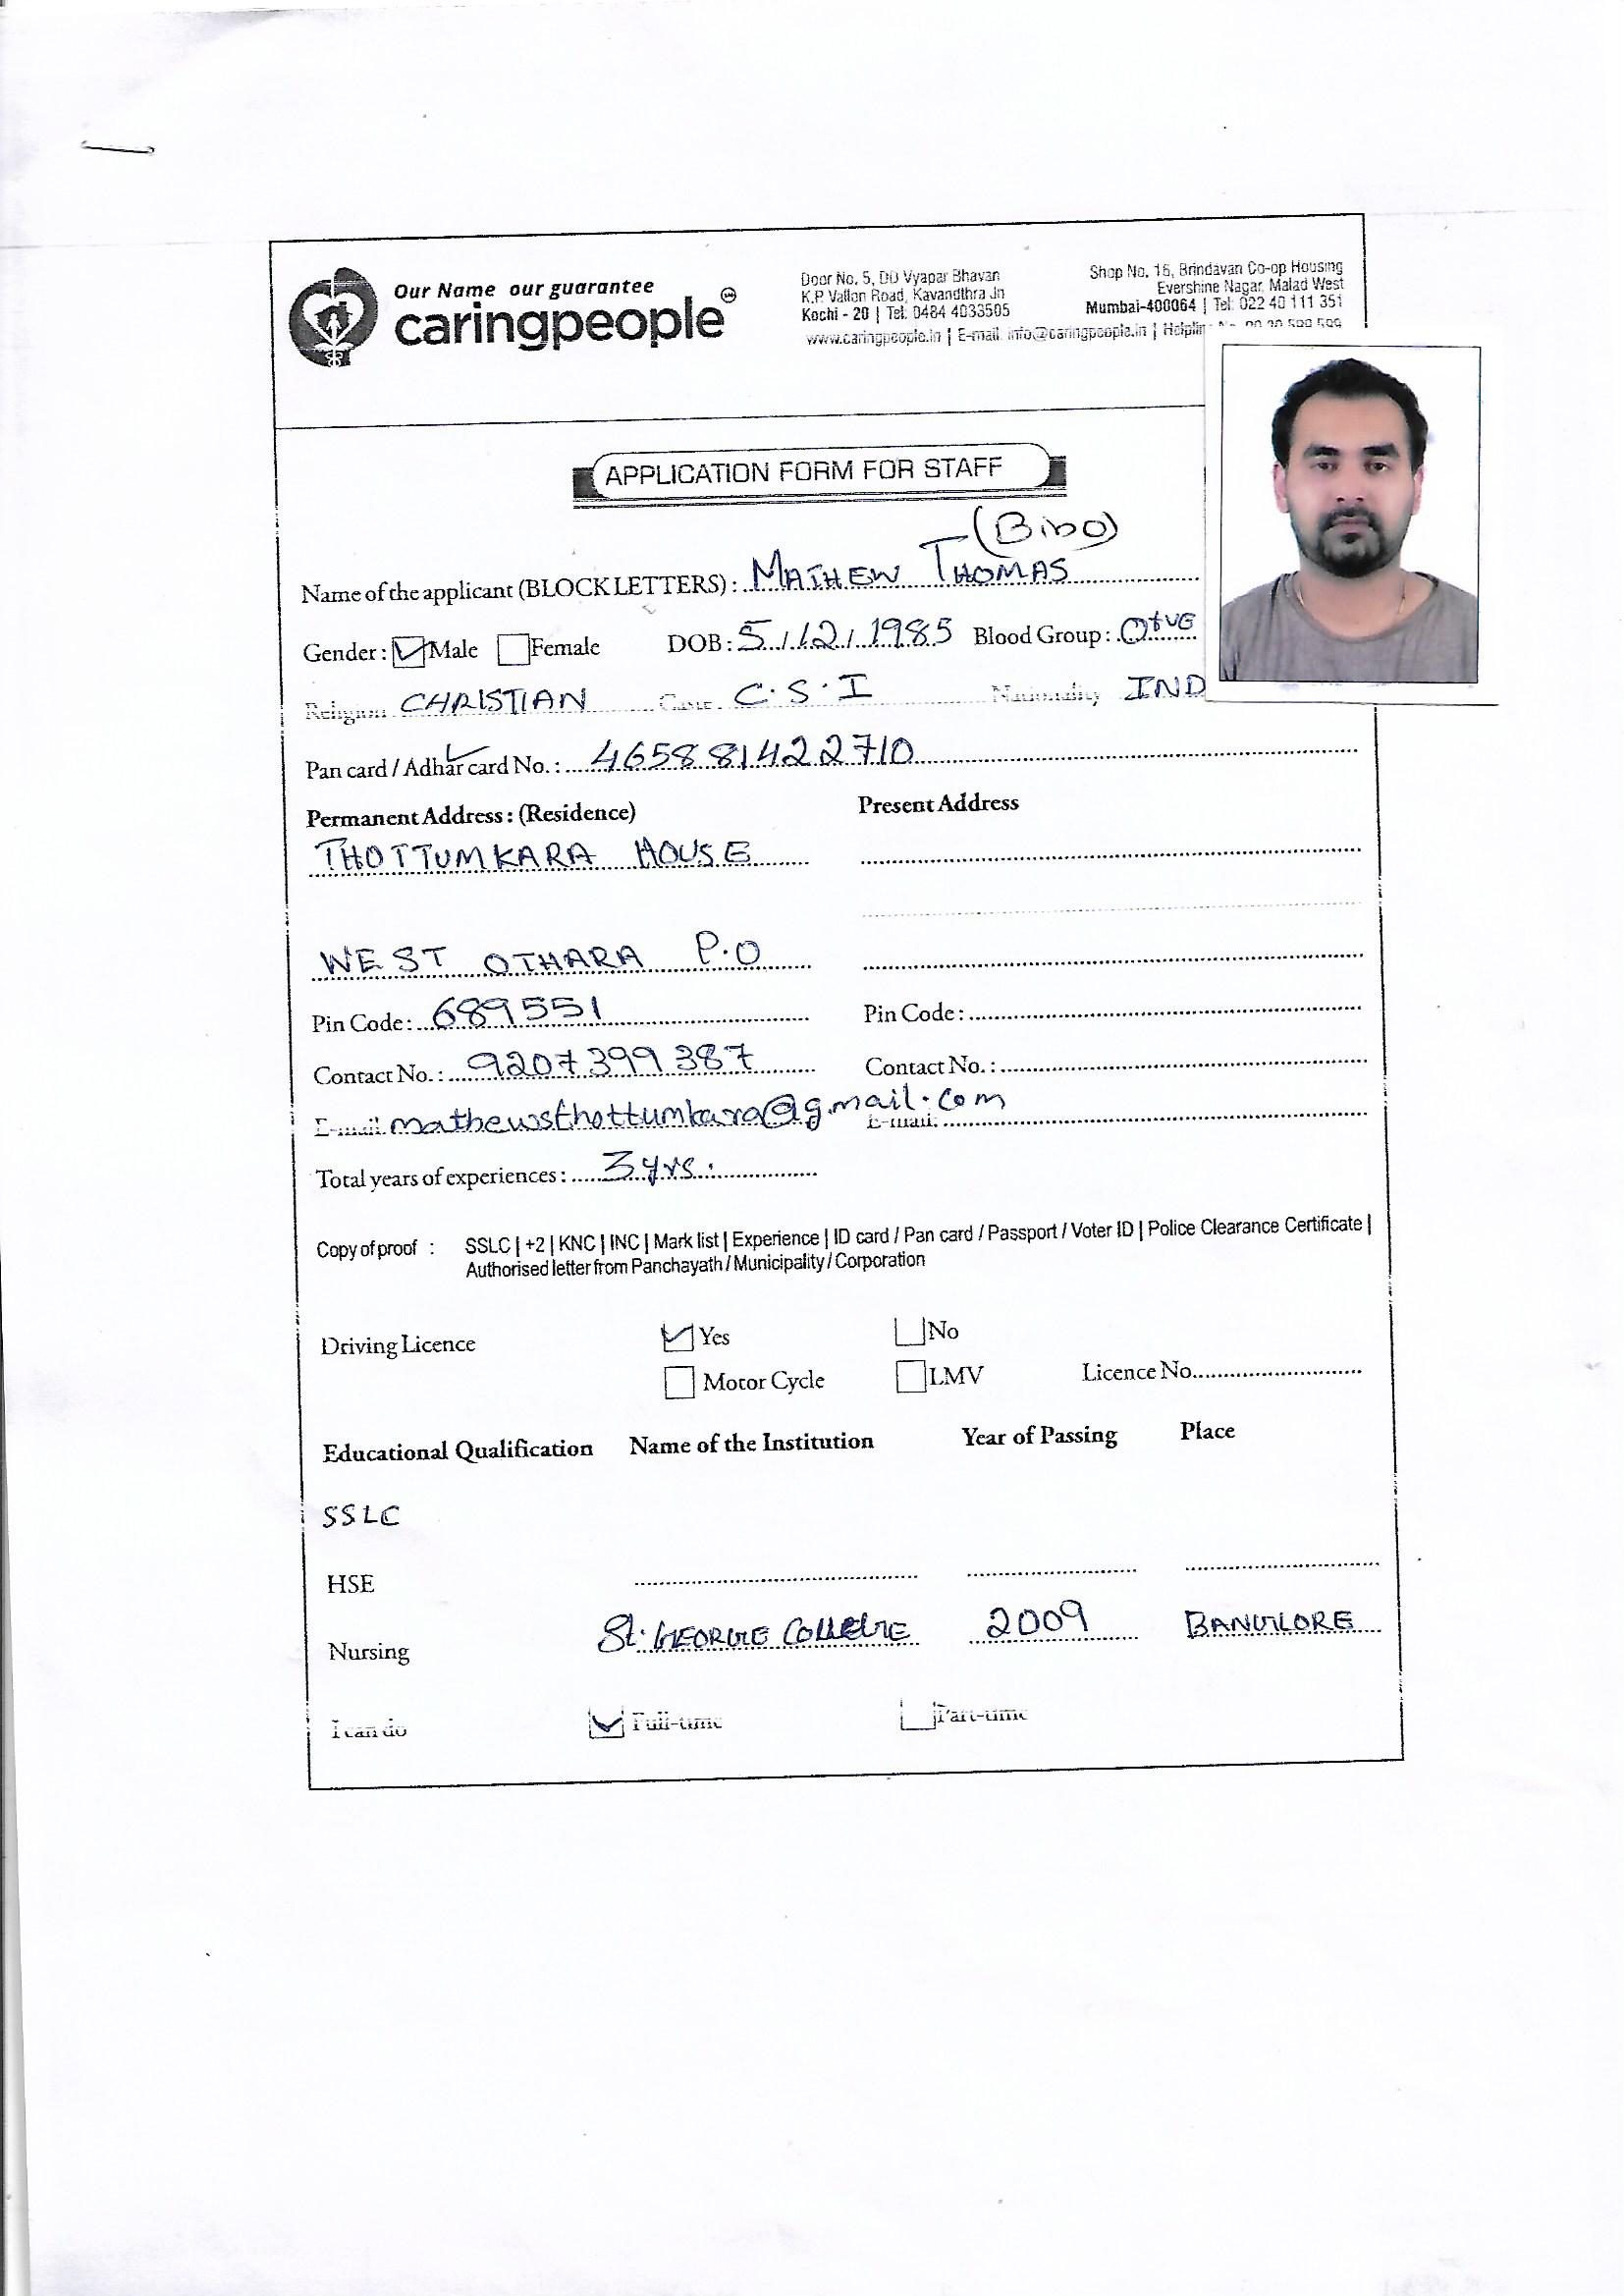 Our Name our guarantee
caringpeople
Door No. 5, DD Vyapar Bhavan
K.P. Vallon Road, Kavandthra Jn
Kochi - 20 | Tel: 0484 4033505
Shop No. 16, Brindavan Co-op Housing
Evershine Nagar, Malad West
Mumbai-400064 | Tel: 022 40 111 351
www.caringpeople.in | E-mail: info@caringpeople.in |
APPLICATION FORM FOR STAFF
(Bibo)
Name of the applicant (BLOCK LETTERS) : MATHEW THOMAS
Gender : Male Female DOB : 5/12/1985 Blood Group : O+ve
Religion CHRISTIAN Caste C.S.I Nationality IND
Pan card / Adhar card No. : 465881422710
Permanent Address : (Residence) Present Address
THOTTUMKARA HOUSE
WEST OTHARA P.O
Pin Code : 689551 Pin Code :
Contact No. : 9207399387 Contact No. :
E-mail: mathewsthottumkara@gmail.com E-mail:
Total years of experiences : 3 yrs.
Copy of proof : SSLC | +2 | KNC | INC | Mark list | Experience | ID card / Pan card / Passport / Voter ID | Police Clearance Certificate |
Authorised letter from Panchayath / Municipality / Corporation
Driving Licence Yes No
Motor Cycle LMV Licence No.
Educational Qualification Name of the Institution Year of Passing Place
SSLC
HSE
Nursing St. GEORGE COLLEGE 2009 BANGLORE
I can do Full-time Part-time